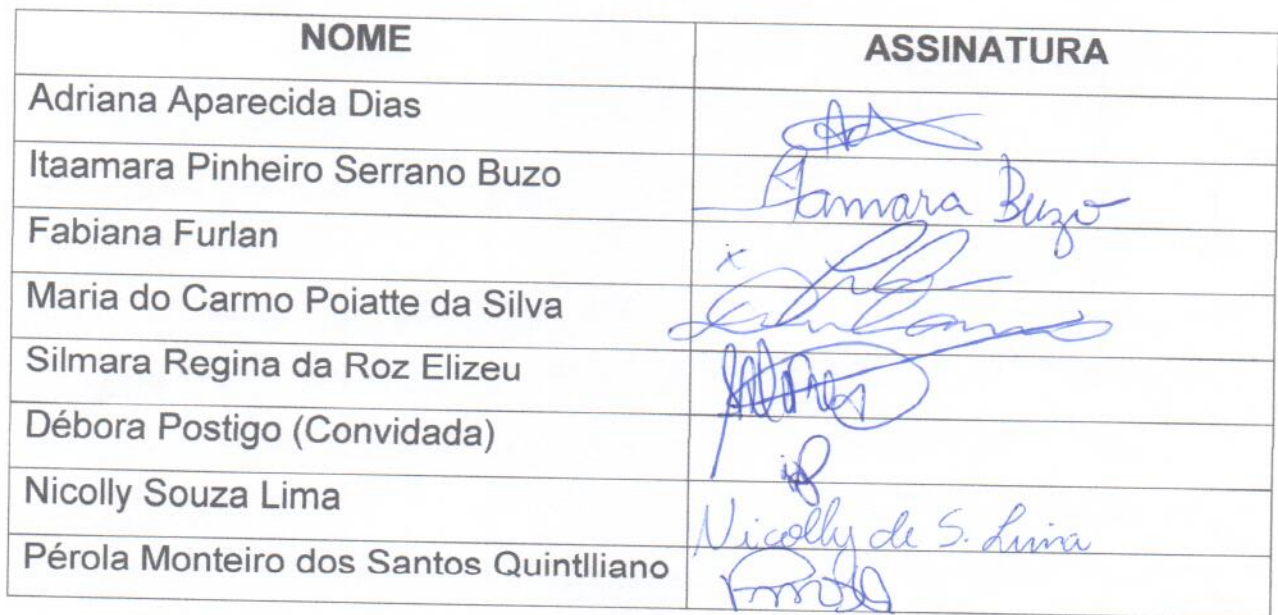 NOME ASSINATURA
Adriana Aparecida Dias
Itaamara Pinheiro Serrano Buzo Itamara Buzo
Fabiana Furlan
Maria do Carmo Poiatte da Silva
Silmara Regina da Roz Elizeu
Débora Postigo (Convidada)
Nicolly Souza Lima Nicolly de S. Lima
Pérola Monteiro dos Santos Quintlliano